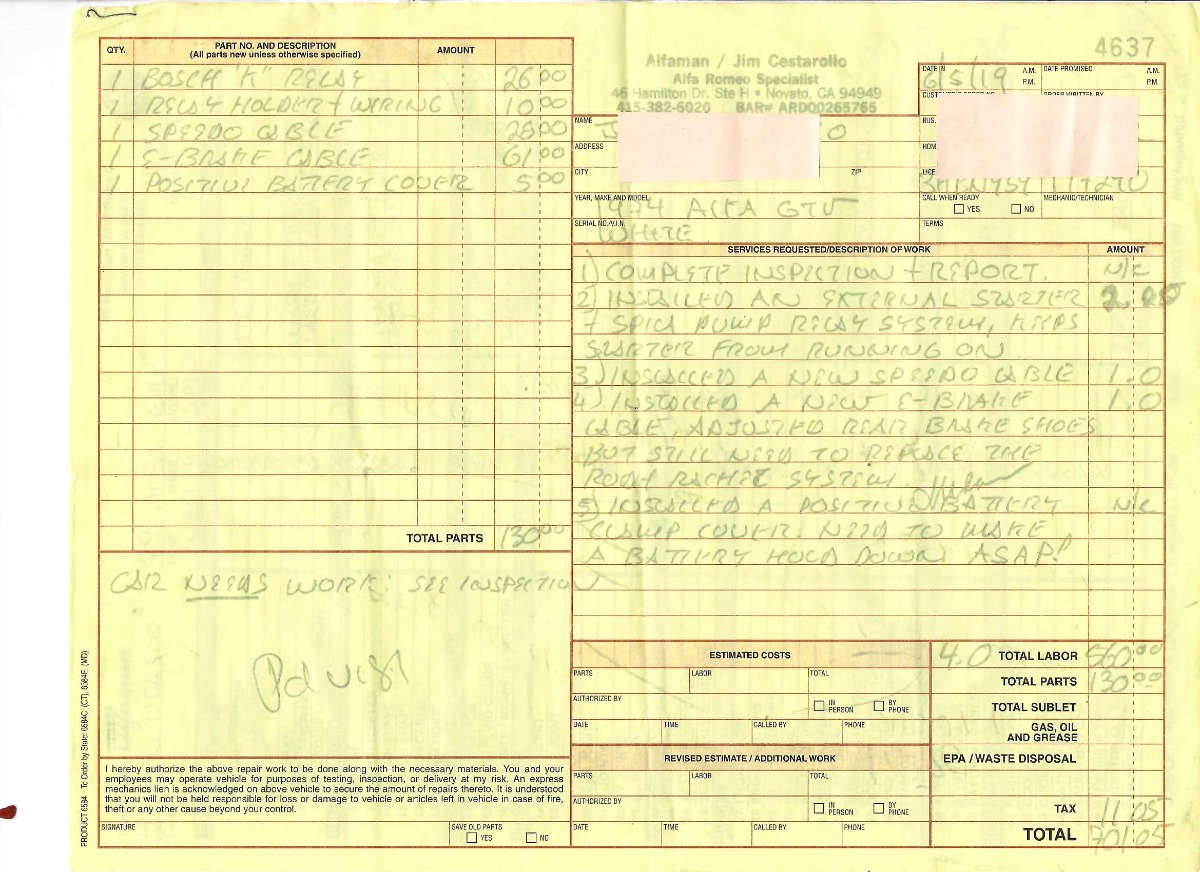 4637
QTY. PART NO. AND DESCRIPTION (All parts new unless otherwise specified) AMOUNT
1 BOSCH "K" RELAY 26 00
1 RELAY HOLDER + WIRING 10 00
1 SPEEDO CABLE 28 00
1 E-BRAKE CABLE 61 00
1 POSITIVE BATTERY COVER 5 00
TOTAL PARTS 130 00
CAR NEEDS WORK: SEE INSPECTION
Pd visa
I hereby authorize the above repair work to be done along with the necessary materials. You and your
employees may operate vehicle for purposes of testing, inspection, or delivery at my risk. An express
mechanics lien is acknowledged on above vehicle to secure the amount of repairs thereto. It is understood
that you will not be held responsible for loss or damage to vehicle or articles left in vehicle in case of fire,
theft or any other cause beyond your control.
SIGNATURE SAVE OLD PARTS YES NO
PRODUCT 6584 To Order by State: 6584C (CT), 6584E (MD)
Alfaman / Jim Cestarollo
Alfa Romeo Specialist
46 Hamilton Dr. Ste H • Novato, CA 94949
415-382-6020 BAR# ARD00265765
DATE IN 6/5/19 A.M. P.M. DATE PROMISED A.M. P.M.
ORDER WRITTEN BY
NAME
BUS.
ADDRESS
HOM
CITY ZIP
LICE
YEAR, MAKE AND MODEL 1974 ALFA GTV
CALL WHEN READY YES NO MECHANIC/TECHNICIAN
SERIAL NO./V.I.N. WHITE
TERMS
SERVICES REQUESTED/DESCRIPTION OF WORK AMOUNT
1) COMPLETE INSPECTION + REPORT. N/C
2) INSTALLED AN EXTERNAL STARTER 2.0
+ SPICA PUMP RELAY SYSTEM, KEEPS
STARTER FROM RUNNING ON
3) INSTALLED A NEW SPEEDO CABLE 1.0
4) INSTALLED A NEW E-BRAKE 1.0
CABLE, ADJUSTED REAR BRAKE SHOES
BUT STILL NEED TO REPLACE THE
RACHET SYSTEM.
5) INSTALLED A POSITIVE BATTERY N/C
CLAMP COVER. NEED TO MAKE
A BATTERY HOLD DOWN ASAP!
ESTIMATED COSTS
PARTS LABOR TOTAL
AUTHORIZED BY IN PERSON BY PHONE
DATE TIME CALLED BY PHONE
REVISED ESTIMATE / ADDITIONAL WORK
PARTS LABOR TOTAL
AUTHORIZED BY IN PERSON BY PHONE
DATE TIME CALLED BY PHONE
4.0 TOTAL LABOR 560 00
TOTAL PARTS 130 00
TOTAL SUBLET
GAS, OIL AND GREASE
EPA / WASTE DISPOSAL
TAX 11 05
TOTAL 701 05